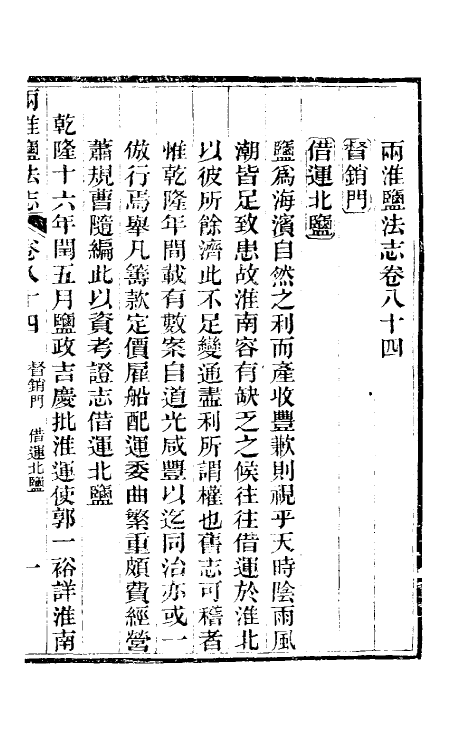 兩淮鹽法志卷八十四
督銷門
借運北鹽
鹽爲海濱自然之利而產收豐歉則視乎天時陰雨風
潮皆足致患故淮南容有缺乏之候往往借運於淮北
以彼所餘濟此不足變通盡利所謂權也舊志可稽者
惟乾隆年間載有數案自道光咸豐以迄同治亦或一
倣行焉舉凡籌款定價雇船配運委曲繁重頗費經營
蕭規曹隨編此以資考證志借運北鹽
乾隆十六年閏五月鹽政吉慶批淮運使郭一裕詳淮南
兩淮鹽法志 卷八十四 督銷門 借運北鹽 一